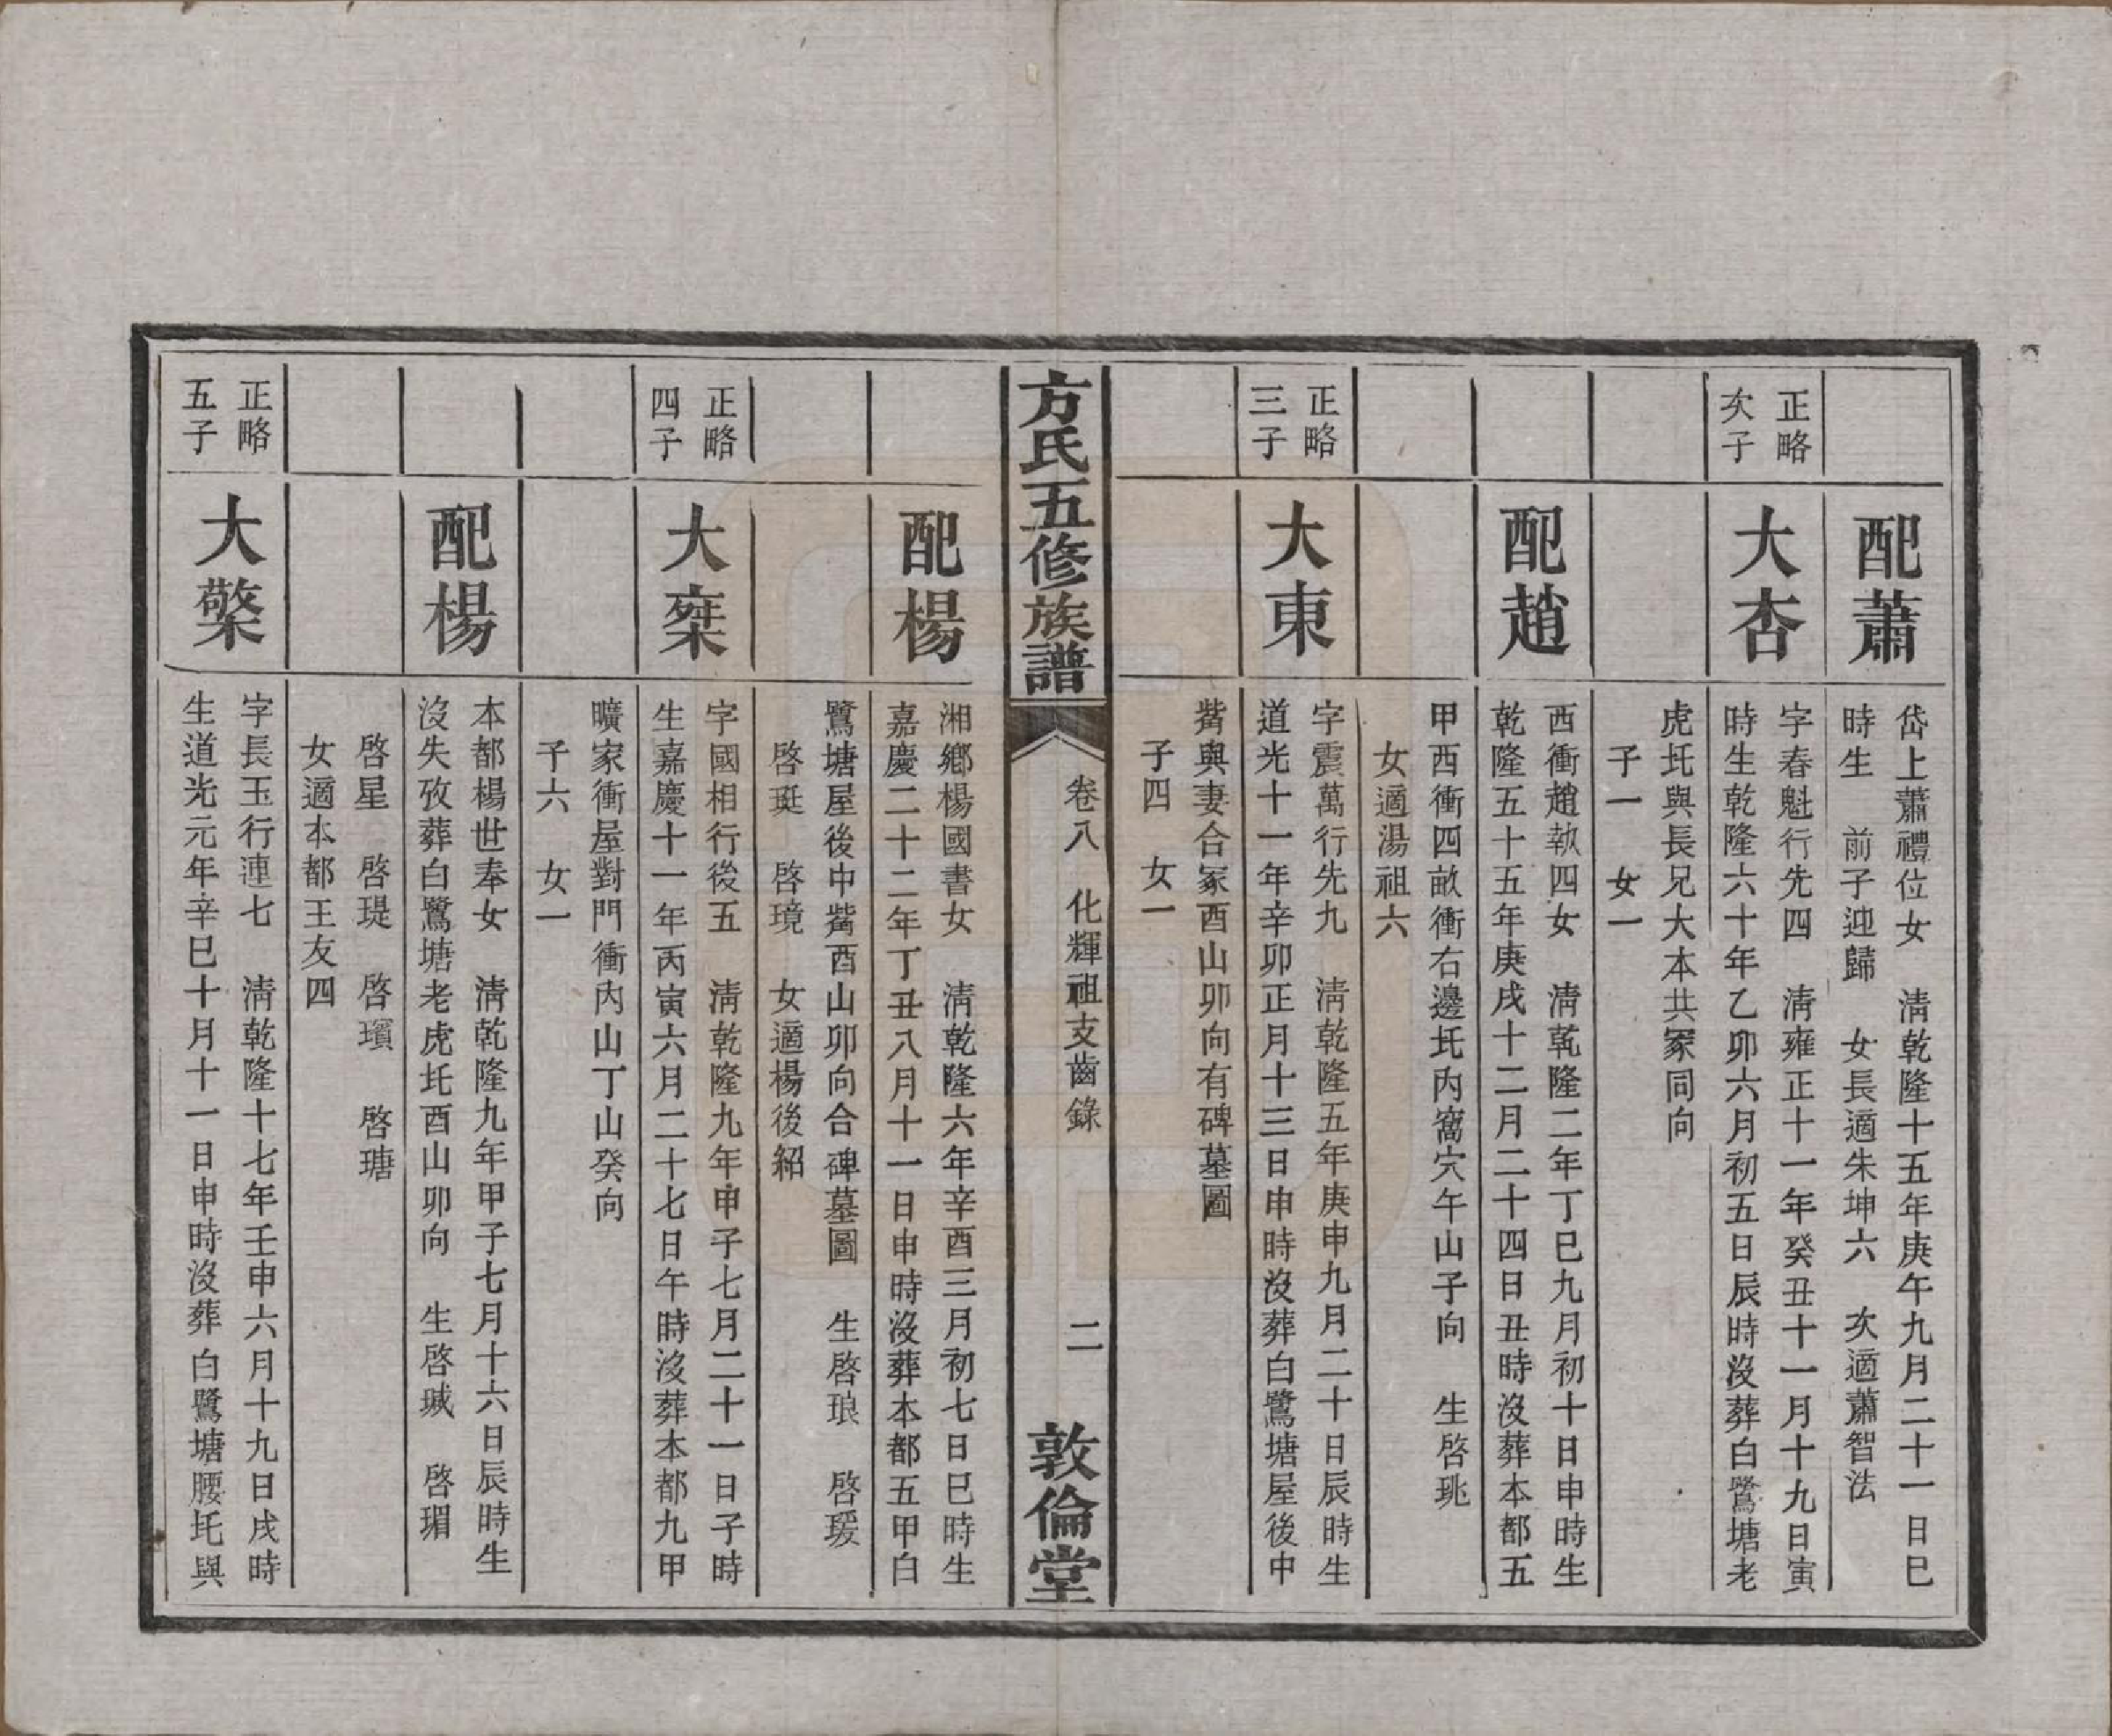 配蕭
岱上蕭禮位女　清乾隆十五年庚午九月二十一日巳
時生　前子迎歸　女長適朱坤六　次適蕭智法
正略
次子
大杏
字春魁行先四　清雍正十一年癸丑十一月十九日寅
時生乾隆六十年乙卯六月初五日辰時沒葬白鷺塘老
虎坵與長兄大本共冢同向
子一　女一
配趙
西衝趙執四女　清乾隆二年丁巳九月初十日申時生
乾隆五十五年庚戌十二月二十四日丑時沒葬本都五
甲西衝四畝衝右邊坵內窩穴午山子向　生啓珧
女適湯祖六
正略
三子
大東
字震萬行先九　清乾隆五年庚申九月二十日辰時生
道光十一年辛卯正月十三日申時沒葬白鷺塘屋後中
觜與妻合冢酉山卯向有碑墓圖
子四　女一
方氏五修族譜
卷八　化輝祖支齒錄
二
敦倫堂
配楊
湘鄉楊國書女　清乾隆六年辛酉三月初七日巳時生
嘉慶二十二年丁丑八月十一日申時沒葬本都五甲白
鷺塘屋後中觜酉山卯向合碑墓圖　生啓琅　啓瑗
啓珽　啓璄　女適楊後紹
正略
四子
大䅁
字國相行後五　清乾隆九年甲子七月二十一日子時
生嘉慶十一年丙寅六月二十七日午時沒葬本都九甲
曠家衝屋對門衝內山丁山癸向
子六　女一
配楊
本都楊世奉女　清乾隆九年甲子七月十六日辰時生
沒失攷葬白鷺塘老虎坵酉山卯向　生啓瑊　啓瑂
啓星　啓瑅　啓璸　啓瑭
女適本都王友四
正略
五子
大檠
字長玉行連七　清乾隆十七年壬申六月十九日戌時
生道光元年辛巳十月十一日申時沒葬白鷺塘腰坵與